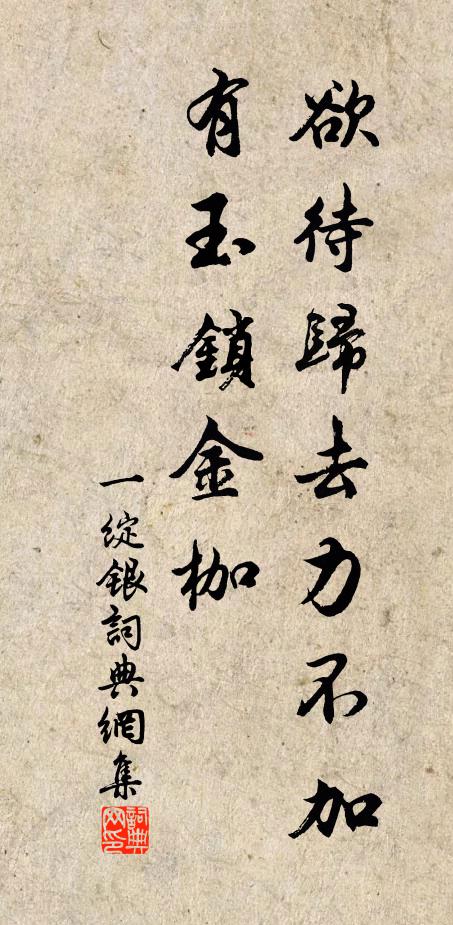 欲待歸去力不加
有玉鎖金枷
一綻銀詞典網集
詞典网印